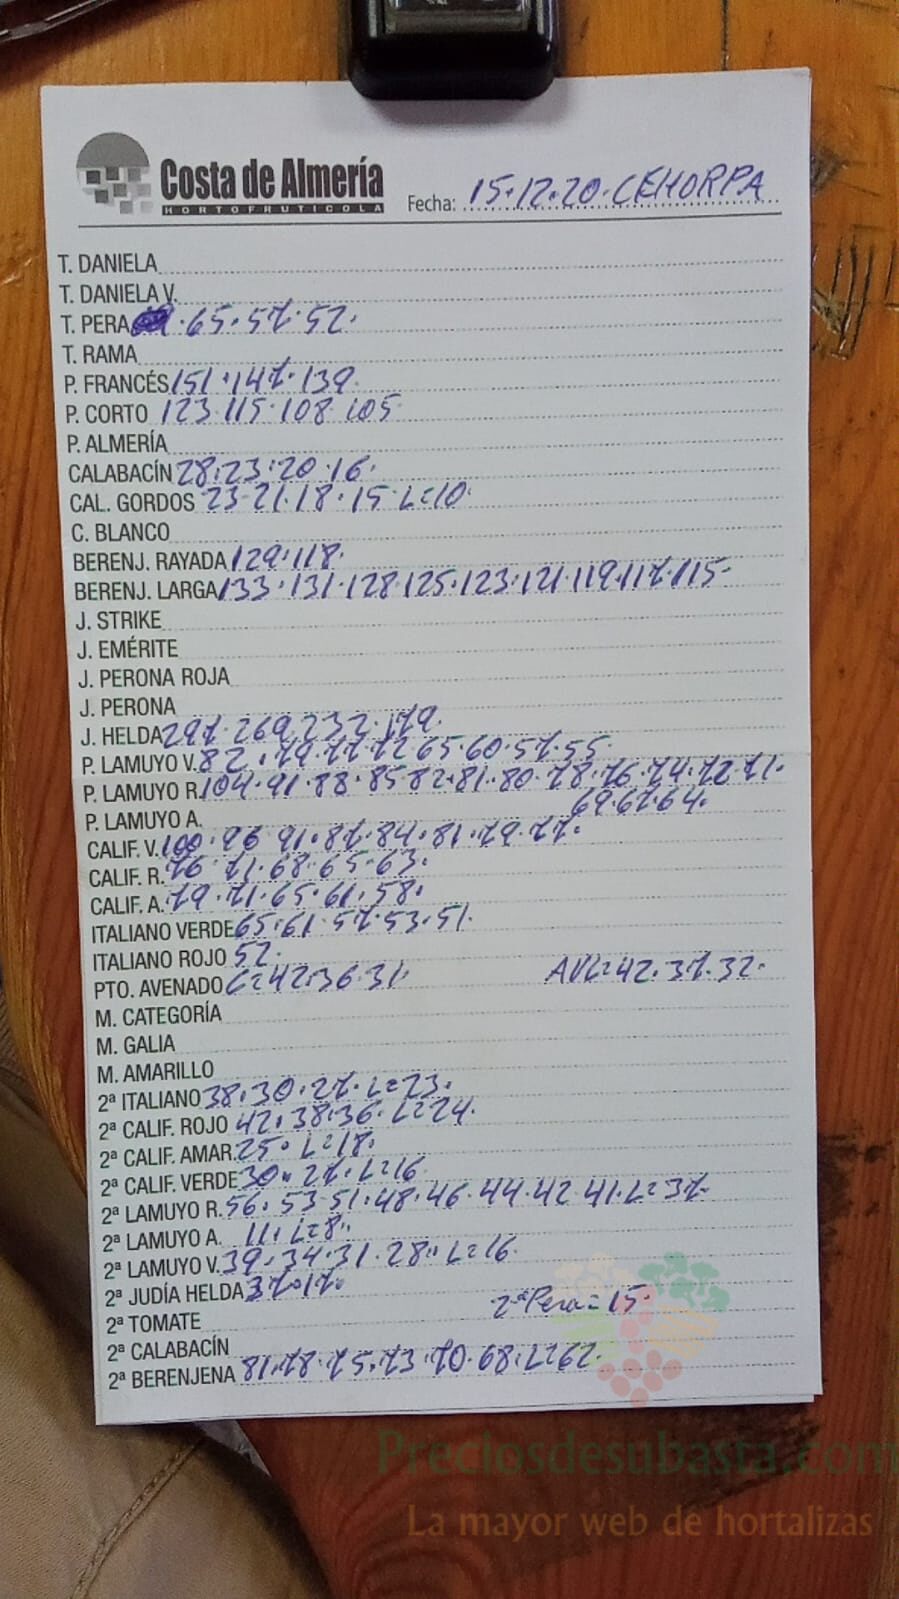 Costa de Almería
HORTOFRUTICOLA
Fecha: 15.12.20. CEHORPA
T. DANIELA
T. DANIELA V.
T. PERA .65.57.52.
T. RAMA
P. FRANCÉS 151.147.139
P. CORTO 123.115.108.105
P. ALMERÍA
CALABACÍN 28.23.20.16.
CAL. GORDOS 23.21.18.15 L=10
C. BLANCO
BERENJ. RAYADA 129.118.
BERENJ. LARGA 133.131.128.125.123.121.119.117.115-
J. STRIKE
J. EMÉRITE
J. PERONA ROJA
J. PERONA
J. HELDA 297.269.232.179.
P. LAMUYO V. 82.79.77.72.65.60.57.55.
P. LAMUYO R. 104.91.88.85.82.81.80.78.76.74.72.71.
P. LAMUYO A. 69.67.64.
CALIF. V. 100.96.91.87.84.81.79.77.
CALIF. R. 76.71.68.65.63.
CALIF. A. 79.71.65.61.58.
ITALIANO VERDE 65.61.57.53.51.
ITALIANO ROJO 52.
PTO. AVENADO C=42.36.31. AVL=42.37.32.
M. CATEGORÍA
M. GALIA
M. AMARILLO
2ª ITALIANO 38.30.27. L=23.
2ª CALIF. ROJO 42.38.36. L=24.
2ª CALIF. AMAR. 25. L=18.
2ª CALIF. VERDE 30.27. L=16
2ª LAMUYO R. 56.53.51.48.46.44.42.41. L=37-
2ª LAMUYO A. 11. L=8.
2ª LAMUYO V. 39.34.31.28. L=16.
2ª JUDÍA HELDA 37.17.
2ª TOMATE 2ª Pera=15.
2ª CALABACÍN
2ª BERENJENA 81.78.75.73.70.68. L=62.
Preciosdesubasta.com
La mayor web de hortalizas